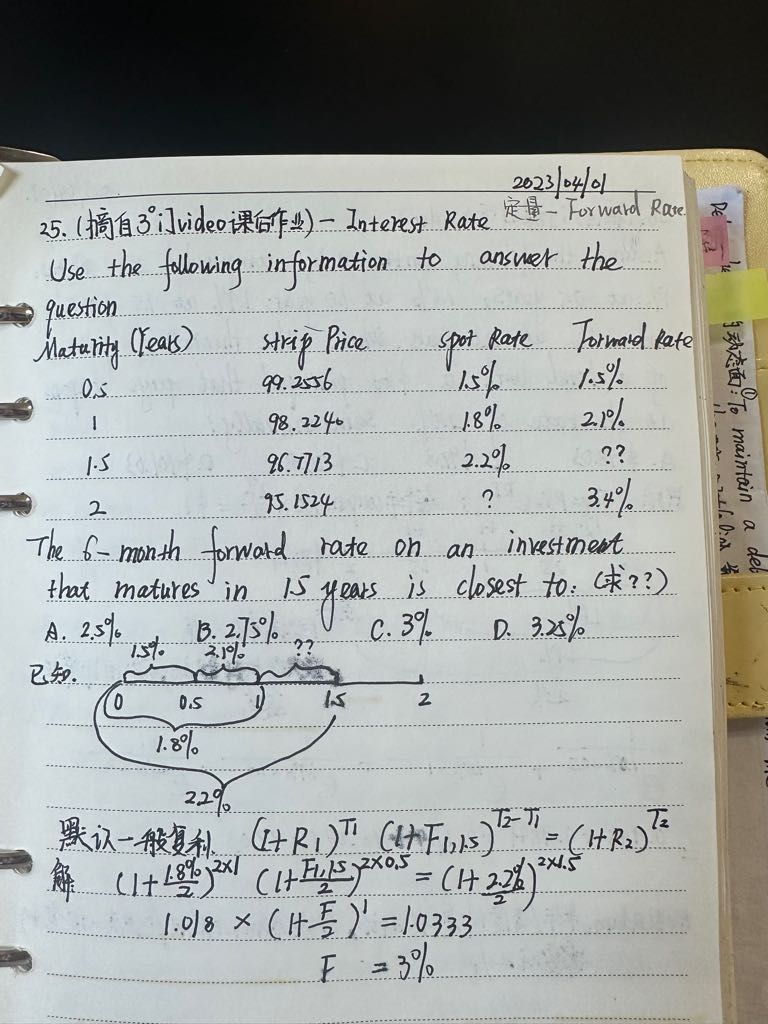 2023/04/01
定量 - Forward Rate
25. (摘自3°i]video课后作业) - Interest Rate
Use the following information to answer the
question
Maturity (Years) strip Price spot Rate Forward Rate
0.5 99.2556 1.5% 1.5%
1 98.2240 1.8% 2.1%
1.5 96.7713 2.2% ??
2 95.1524 ? 3.4%
The 6-month forward rate on an investment
that matures in 1.5 years is closest to: (求??)
A. 2.5% B. 2.75% C. 3% D. 3.25%
已知. 1.5% 2.1% ??
0 0.5 1 1.5 2
1.8%
2.2%
默认一般复利. (1+R₁)^T₁ (1+F₁,₁.₅)^T₂-T₁ = (1+R₂)^T₂
解 (1+1.8%/2)^2×1 (1+F₁,₁.₅/2)^2×0.5 = (1+2.2%/2)^2×1.5
1.018 × (1+F/2)^1 = 1.0333
F = 3%
动态面: ① To maintain a del